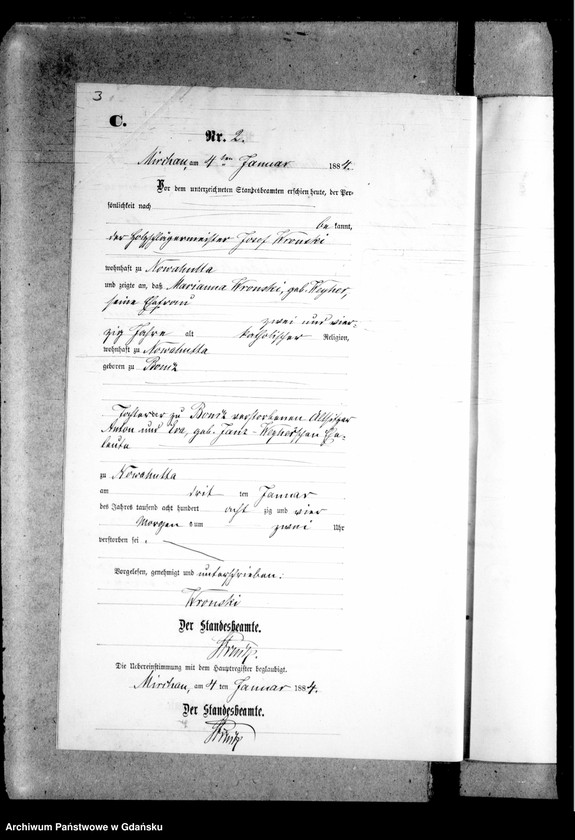 3
C.
Nr. 2.
Mirchau, am 4 ten Januar 1884.
Vor dem unterzeichneten Standesbeamten erschien heute, der Per-
sönlichkeit nach
be kannt,
der Holzschlägermeister Josef Wronski
wohnhaft zu Nowahutta
und zeigte an, daß Marianna Wronski, geb. Weyher,
seine Ehefrau
zwei und vier-
zig Jahre alt katholischer Religion,
wohnhaft zu Nowahutta
geboren zu Bontz
Tochter der zu Bontz verstorbenen Altsitzer
Anton und Eva, geb. Janz-Weyher'schen Ehe-
leute
zu Nowahutta
am drit ten Januar
des Jahres tausend acht hundert acht zig und vier
Morgens um zwei Uhr
verstorben sei.
Vorgelesen, genehmigt und unterschrieben:
Wronski
Der Standesbeamte.
Die Uebereinstimmung mit dem Hauptregister beglaubigt.
Mirchau, am 4 ten Januar 1884.
Der Standesbeamte.
Archiwum Państwowe w Gdańsku